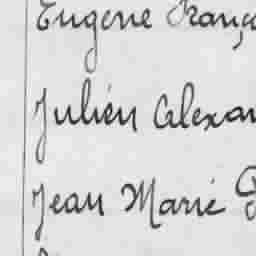 Eugène Franço
Julien Alexan
Jean Marie